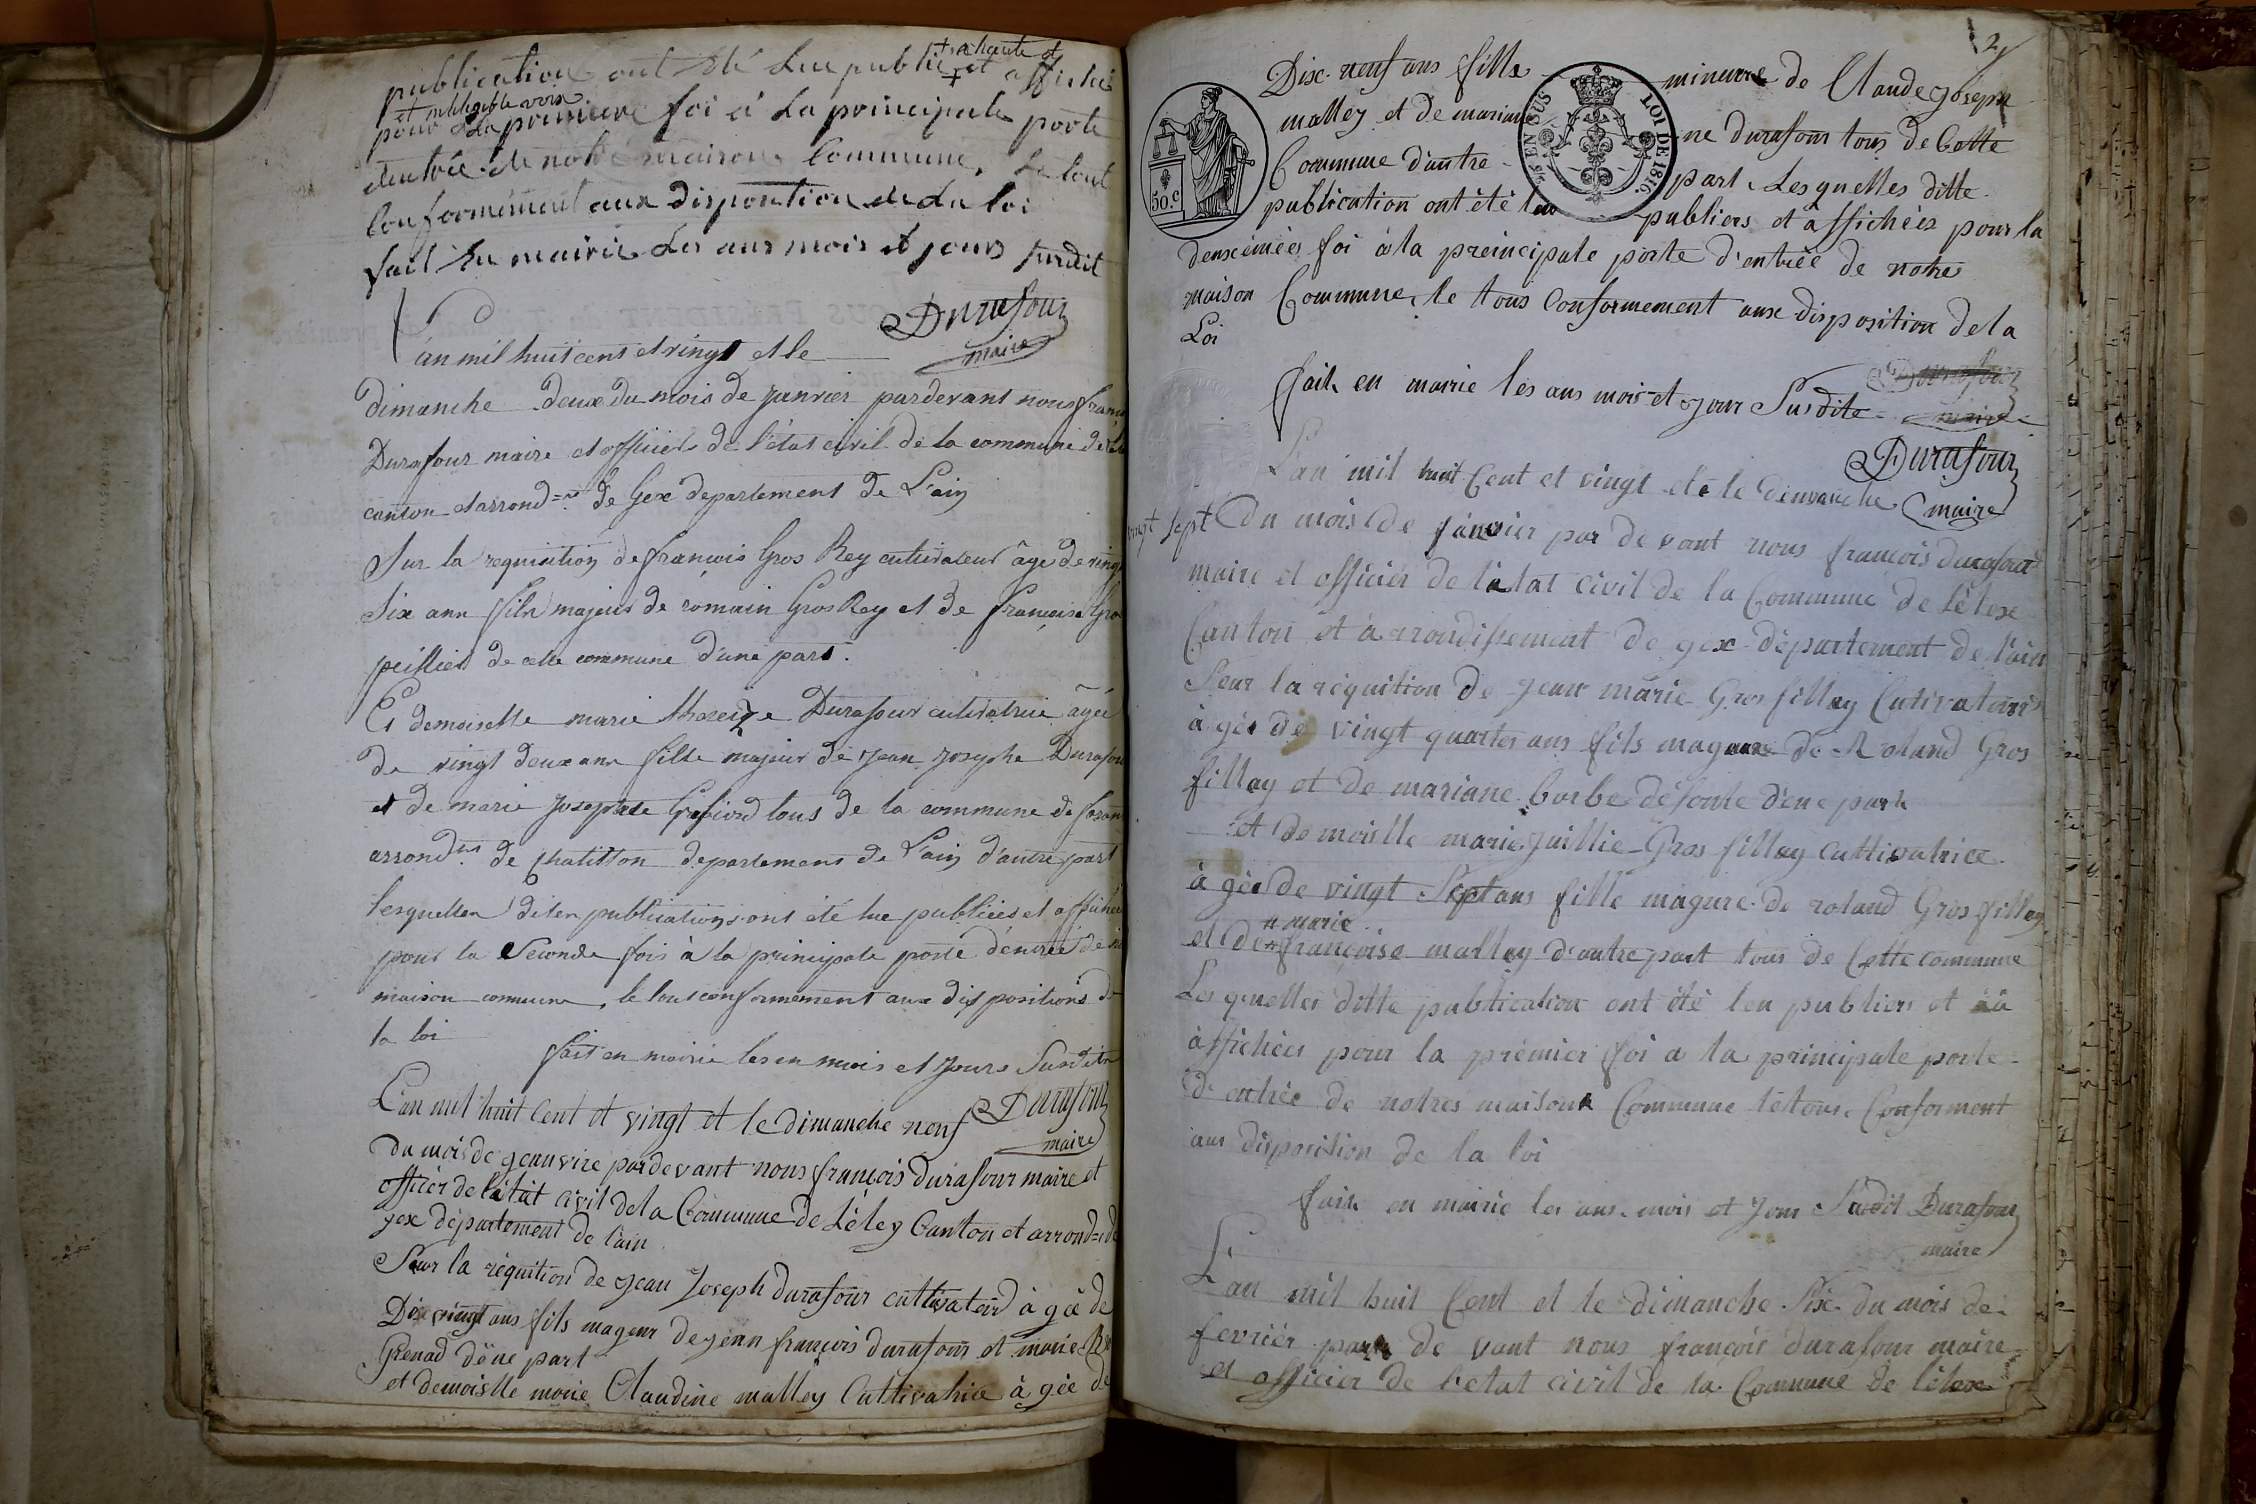 publication ont été Lue publié + et affiché
+ a haute et
et inteligible voix
pour La premiere foi à La principale porte
dentrée de notre maison Commune, Le tout
Conformément aux disposition de La loi
fait En mairie Les ans mois et jours susdit
Durafour
maire
L'an mil huit cent et vingt et le
dimanche deux du mois de janvier pardevant nous
Durafour maire et officier de l'état civil de la commune de
canton et arrond=nt de Gex departement de L'ain
Sur la requisition de françois Gros Rey cultivateur âgé de vingt
Six ans fils majeur de romain Gros Rey et de françoise Gro
peillier de cette commune d'une part.
Et demoiselle marie thereize Durafour cultivatrice âgée
de vingt deux ans fille majeur de jean josephe Durafou
et de marie josephte tous de la commune de
arrond=nt de chatillon departement de L'ain d'autre part
lesquelles dites publications ont été lue publiées et affichée
pour la Seconde fois à la principale porte d'entrée de
maison commune, le tout conformement aux dispositions de
la loi
fait en mairie les en mois et jours Susdits
Durafour
maire
L'an mil huit Cent et vingt et le dimanche neuf
du mois de geanvire pardevant nous françois durafour maire et
officier de l'état civil de la Commune de Léley Canton et arrond=
gex département de l'ain
Seur la réquition de jean Joseph durafour cultivatoir à gée de
vingt ans fils mageur de jean françois durafour et marie
Grenad d'ene part
et demoislle marie Claudine malley Cultivatrice à gée de
2
50.C
EN SUS
LOI DE 1816.
Dix-neuf ans fille mineure de Claude joseph
malley et de mariane durafour tous de Cette
Commune d'autre part Lesquelles ditte
publication ont été leu publiers et affichées pour la
deuxcémées foi à la preincipale porte d'entrée de notre
maison Commune, le tous Conformement aux disposition de la
Loi
fait en mairie les ans mois et jour Susdite
Durafour
maire
Durafour
maire
L'an mil huit Cent et vingt et le dimanche
vingt sept du mois de janvier par de vant nous françois durafour
maire et officier de l'état civil de la Commune de Lélex
Canton et à rrondissement de gex département de l'ain
Seur la réquition de jean marie Gros fillay Cutivatoire
à gée de vingt quarter ans fils mageure de Roland Gros
fillay et de mariane barbe défonte d'ene part
et de moislle marie juillie Gros fillay Cultivatrice
à gée de vingt Sept ans fille magure de roland Gros fillay
# marie
et de # françoise malley d'autre part tous de Cette commune
Les quelles ditte publication ont été leu publiers et
àffichées pour la prémier foi a la principale porte
D'entrée de notres maison Commune le tous Conforment
aux disposition de la loi
fait en mairie les ans mois et jour Susdit Durafour
maire
L'an mil huit Cent et le dimanche Six du mois de
fevriér par de vant nous françois durafour maire
et officier de l'etat civil de la Commune de lélex